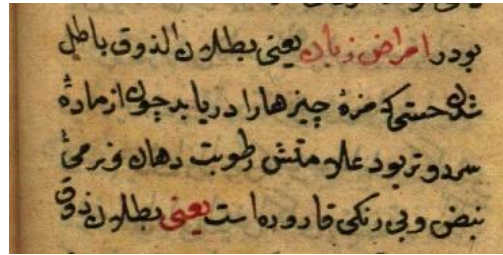 بود در امراض زبان یعنی بطلان الذوق باطل
شدن حسی که مزهٔ چیزها را دریابد چون از مادهٔ
سرد و تر بود علامتش رطوبت دهان و نرمی
نبض و بی رنکی قاروره است یعنی بطلان ذوق